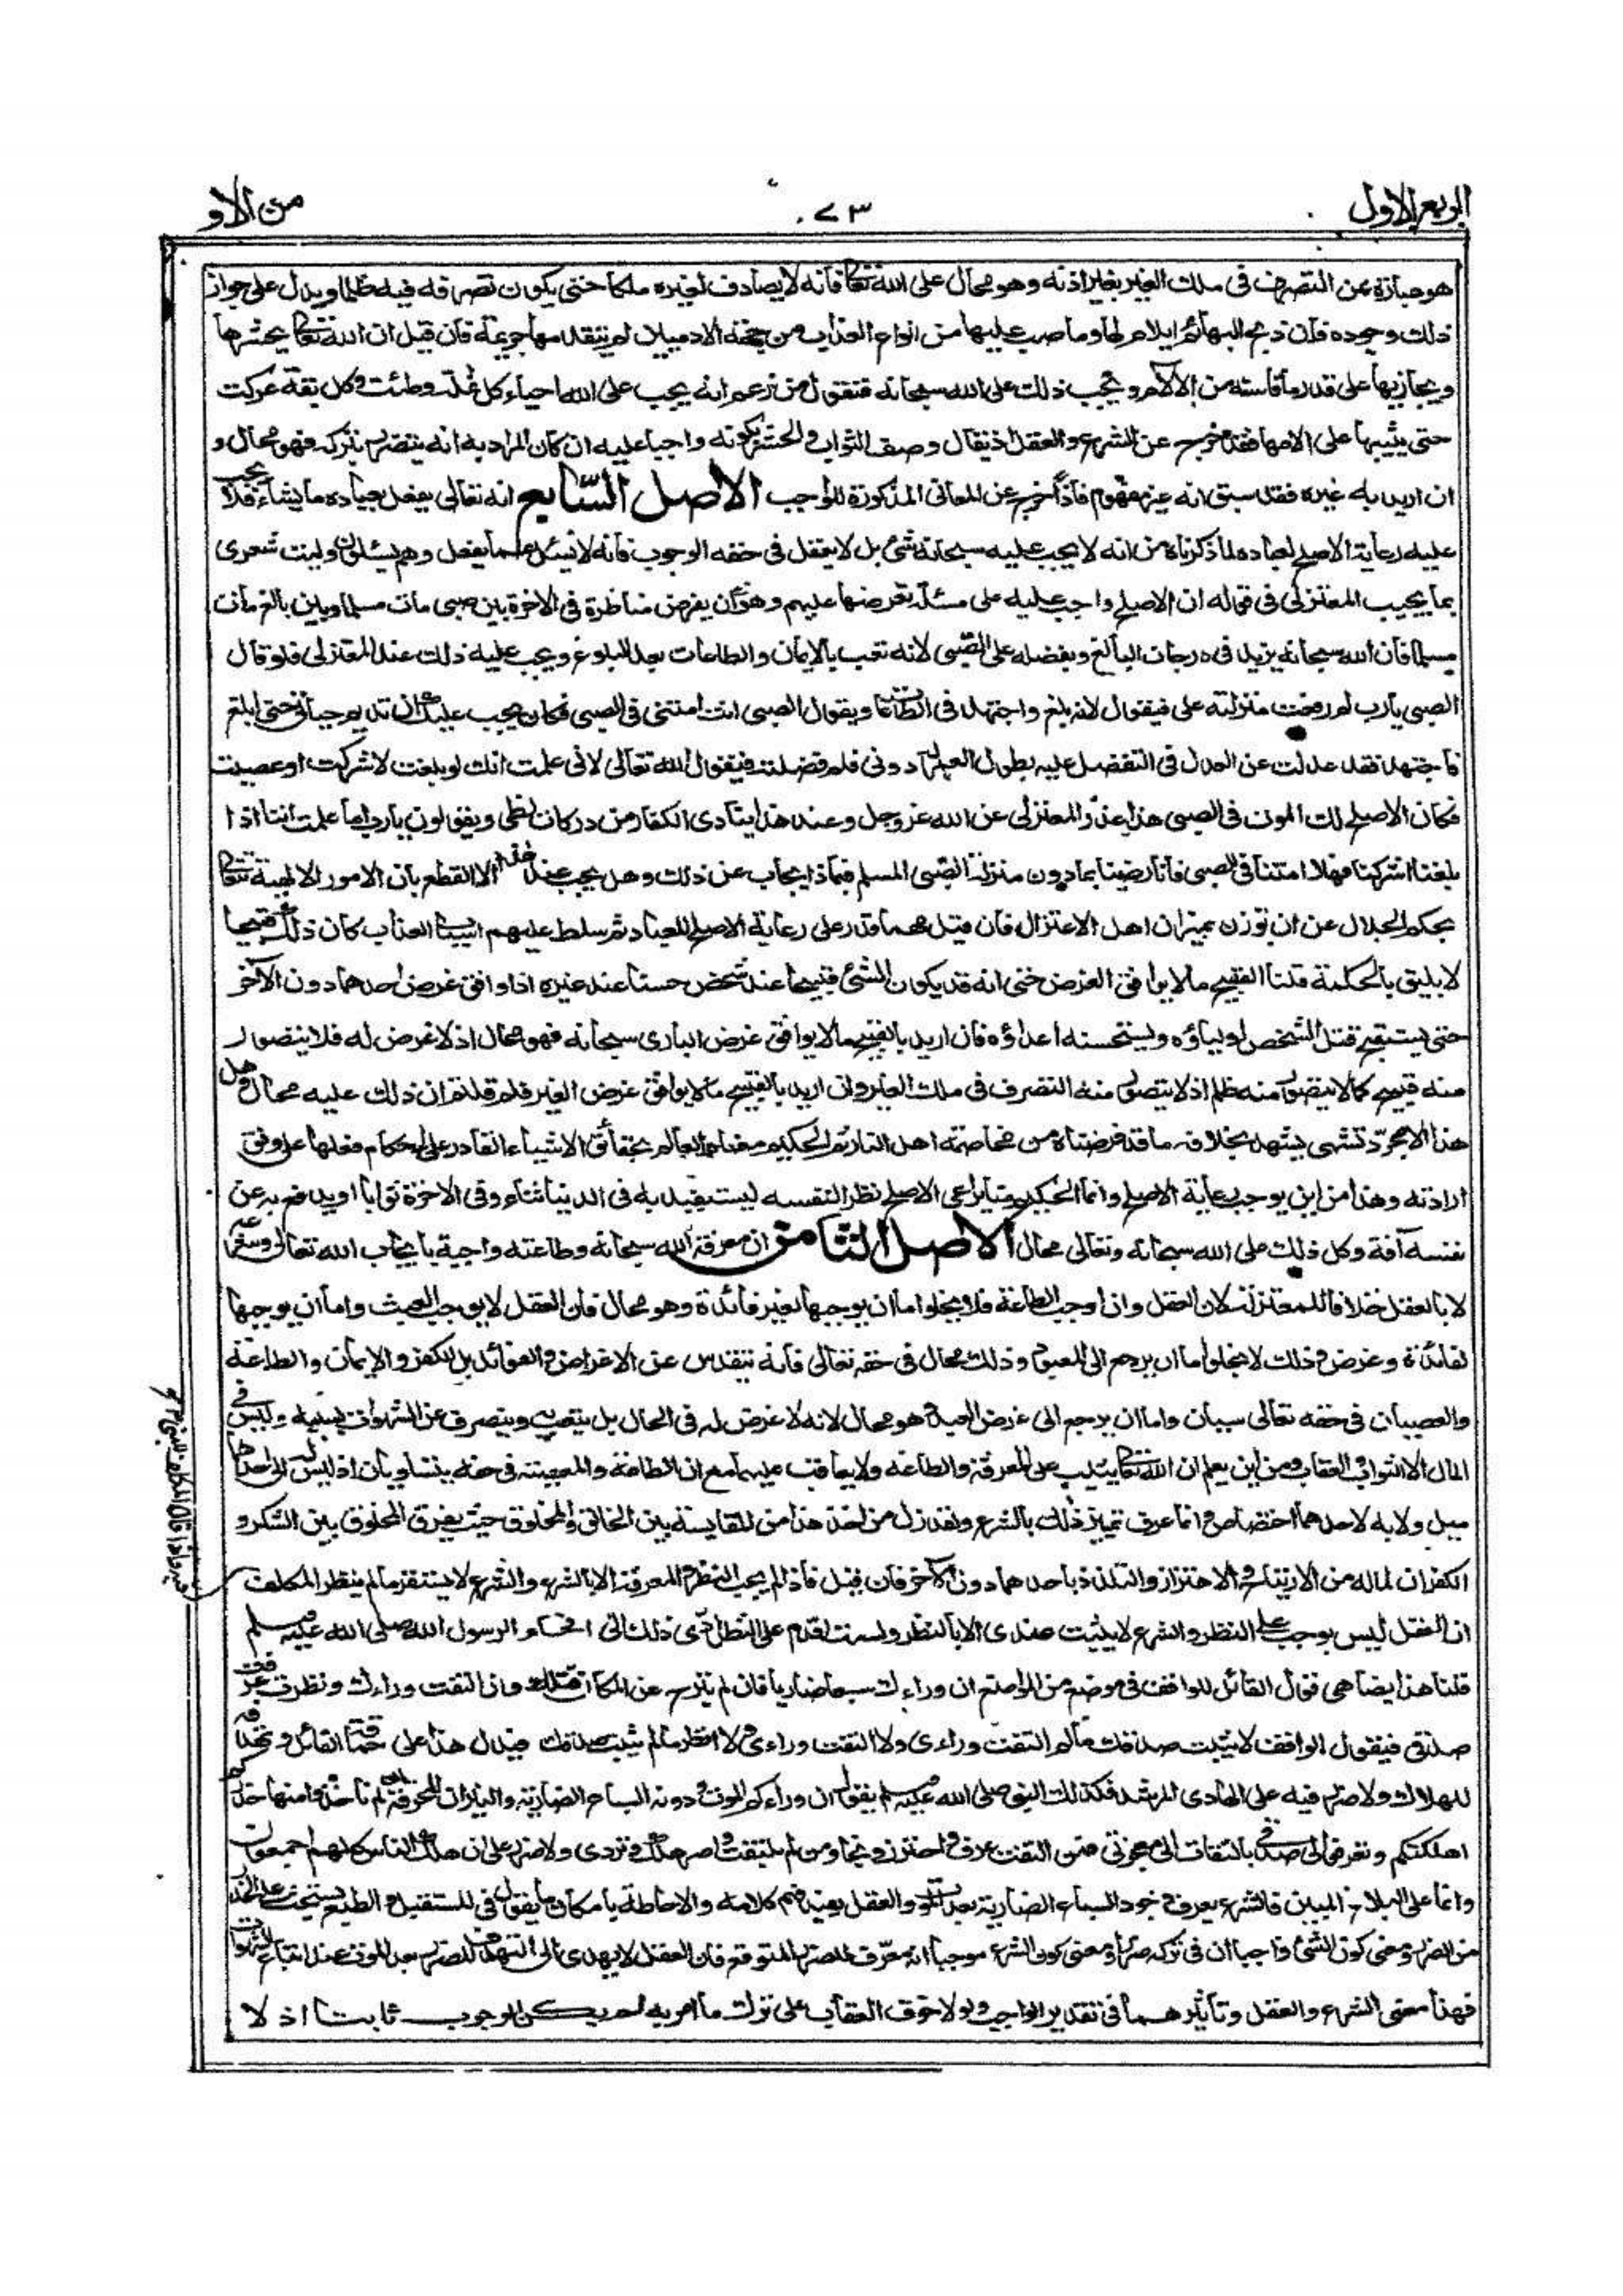 الربع الاول
٧٣
من الاو
هو عبارة عن التصرف فى ملك الغير بغير اذنه وهو محال على الله تعالى فانه لا يصادف لغيره ملكا حتى يكون تصرفه فيه ظلما ويدل على جواز
ذلك وجوده فان ذبح البهائم ايلام لها وما صب عليها من انواع العذاب من جهة الادميين لم يتقدمها جريمة فان قيل ان الله تعالى يحشرها
ويجازيها على قدر ما قاسته من الآلام ويجب ذلك على الله سبحانه فنقول من زعم انه يجب على الله احياء كل نملة وطئت وكل بقة عركت
حتى يثيبها على الامها فقد خرج عن الشرع والعقل اذ يقال وصف الثواب والحشر بكونه واجبا عليه ان كان المراد به انه يتضرر بتركه فهو محال و
ان اريد به غيره فقد سبق انه غير مفهوم فاذا خرج عن المعانى المذكورة للواجب الاصل السابع انه تعالى يفعل بعباده ما يشاء فلا يجب
عليه رعاية الاصلح لعباده لما ذكرناه من انه لا يجب عليه سبحانه شئ بل لا يعقل فى حقه الوجوب فانه لا يسئل عما يفعل وهم يسئلون وليت شعرى
بما يجيب المعتزلى فى قوله ان الاصلح واجب عليه على مسئلة نعرضها عليهم وهو ان يفرض مناظرة فى الاخرة بين صبى مات مسلما وبين بالغ مات
مسلما فان الله سبحانه يزيد فى درجات البالغ ويفضله على الصبى لانه تعب بالايمان والطاعات بعد البلوغ ويجب عليه ذلك عند المعتزلى فلو قال
الصبى يارب لم رفعت منزلته على فيقول لانه بلغ واجتهد فى الطاعات ويقول الصبى انت امتنى فى الصبى فكان يجب عليك ان تديم حياتى حتى ابلغ
فاجتهد فقد عدلت عن العدل فى التفضل عليه بطول العمر له دونى فلم فضلته فيقول الله تعالى لانى علمت انك لو بلغت لاشركت او عصيت
فكان الاصلح لك الموت فى الصبى هذا عذر المعتزلى عن الله عز وجل وعند هذا ينادى الكفار من دركات لظى ويقولون يارب اما علمت اننا اذا
بلغنا اشركنا فهلا امتنا فى الصبى فانا رضينا بما دون منزلة الصبى المسلم فبماذا يجاب عن ذلك وهل يجب عند هذا الا القطع بان الامور الالهية تتعالى
بحكم الجلال عن ان توزن بميزان اهل الاعتزال فان قيل مهما قدر على رعاية الاصلح للعباد ثم سلط عليهم اسباب العذاب كان ذلك قبيحا
لا يليق بالحكمة قلنا القبيح ما لا يوافق الغرض حتى انه قد يكون الشئ قبيحا عند شخص حسنا عند غيره اذا وافق غرض احدهما دون الآخر
حتى يستقبح قتل الشخص اولياؤه ويستحسنه اعداؤه فان اريد بالقبيح ما لا يوافق غرض البارى سبحانه فهو محال اذ لا غرض له فلا يتصور
منه قبيح كما لا يتصور منه ظلم اذ لا يتصور منه التصرف فى ملك الغير وان اريد بالقبيح ما لا يوافق غرض الغير فلم قلتم ان ذلك عليه محال وهل
هذا الا مجرد تشهى يشهد بخلافه ما قد فرضناه من مخاصمة اهل النار ثم الحكيم معناه العالم بحقائق الاشياء القادر على احكام فعلها على وفق
ارادته وهذا من اين يوجب رعاية الاصلح وانما الحكيم منا يراعى الاصلح نظرا لنفسه ليستفيد به فى الدنيا ثناء وفى الاخرة ثوابا او يدفع به عن
نفسه آفة وكل ذلك على الله سبحانه وتعالى محال الاصل الثامن ان معرفة الله سبحانه وطاعته واجبة بايجاب الله تعالى وشرعه
لا بالعقل خلافا للمعتزلة لان العقل وان اوجب الطاعة فلا يخلو اما ان يوجبها لغير فائدة وهو محال فان العقل لا يوجب العبث واما ان يوجبها
لفائدة وغرض وذلك لا يخلو اما ان يرجع الى المعبود وذلك محال فى حقه تعالى فانه يتقدس عن الاغراض والفوائد بل الكفر والايمان والطاعة
والعصيان فى حقه تعالى سيان واما ان يرجع الى غرض العبد وهو محال لانه لا غرض له فى الحال بل يتعب به وينصرف عن الشهوات بسببه وليس فى
المآل الا الثواب والعقاب ومن اين يعلم ان الله تعالى يثيب على المعرفة والطاعة ولا يعاقب عليهما مع ان الطاعة والمعصية فى حقه يتساويان اذ ليس له الى احدهما
ميل ولا به لاحدهما اختصاص وانما عرف تميز ذلك بالشرع ولقد زل من اخذ هذا من المقايسة بين الخالق والمخلوق حيث يفرق المخلوق بين الشكر و
الكفران لما له من الارتياح والاهتزاز والتلذذ باحدهما دون الآخر فان قيل فاذا لم يجب النظر والمعرفة الا بالشرع والشرع لا يستقر ما لم ينظر المكلف
ان العقل ليس يوجب على النظر والشرع لا يثبت عندى الا بالنظر ولست اقدم على النظر ادى ذلك الى افحام الرسول الله صلى الله عليه وسلم
قلنا هذا يضاهى قول القائل للواقف فى موضع من المواضع ان وراءك سبعا ضاريا فان لم تبرح عن المكان قتلك وان التفت وراءك ونظرت عرفت
صدقى فيقول الواقف لا يثبت صدقك ما لم التفت وراءى ولا التفت وراءى ولا انظر ما لم يثبت صدقك فيدل هذا على حماقة القائل وتهدفه
للهلاك ولا ضرر فيه على الهادى المرشد فكذلك النبى صلى الله عليه وسلم يقول ان وراءكم الموت ودونه السباع الضارية والنيران المحرقة ان لم تاخذوا منها حذركم
اهلكتكم وتعرفوا لى صدقى بالتفات الى معجزتى فمن التفت عرف واحترز ونجا ومن لم يلتفت واصر هلك وتردى ولا ضرر على ان هلك الناس كلهم اجمعون
وانما على البلاغ المبين فالشرع يعرف وجود السباع الضارية بعد الموت والعقل يفيد فهم كلامه والاحاطة بامكان ما يقول فى المستقبل والطبع يستحث على الحذر
من الضرر ومعنى كون الشئ واجبا ان فى تركه ضررا ومعنى كون الشرع موجبا انه معرف للضرر المتوقع فان العقل لا يهدى الى التهدف للضرر بعد الموت عند اتباع الشهوات
فهذا معنى الشرع والعقل وتاثيرهما فى تقدير الواجب ولولا خوف العقاب على ترك ما امر به لم يكن الوجوب ثابتا اذ لا